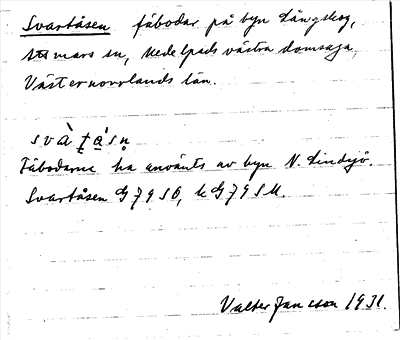 Svartåsen fäbodar på byn Långskog,
Stt mars sn, Medelpads västra domsaga,
Västernorrlands län.
svàṭásṇ
Fäbodarne ha använts av byn N. Lindsjö.
Svartåsen G 79 SÖ, k G 79 SM.
Valter Jansson 1931.